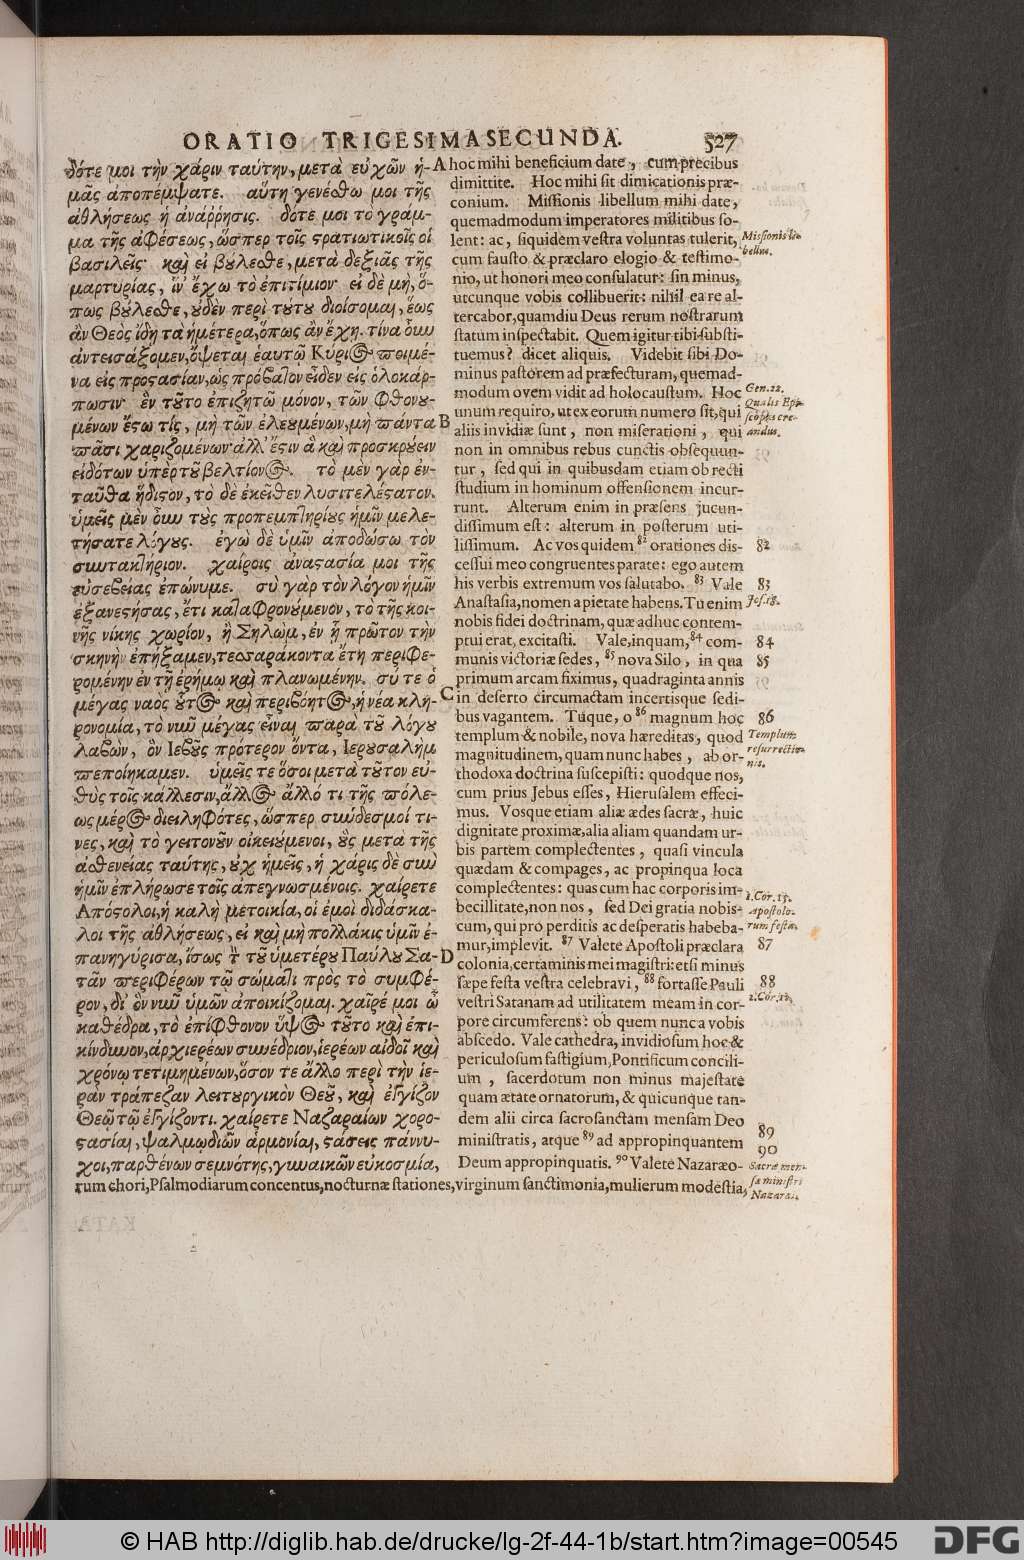 ORATIO TRIGESIMASECUNDA. 527
δότε μοι τὴν χάριν ταύτην, μετὰ εὐχῶν ἡ-
μᾶς ἀποπέμψατε. αὕτη γενέσθω μοι τῆς
ἀθλήσεως ἡ ἀνάῤῥησις. δότε μοι τὸ γράμ-
μα τῆς ἀφέσεως, ὥσπερ τοῖς στρατιωτικοῖς οἱ
βασιλεῖς· καὶ εἰ βούλεσθε, μετὰ δεξιᾶς τῆς
μαρτυρίας, ἵν' ἔχω τὸ ἐπιτίμιον· εἰ δὲ μὴ, ὅ-
πως βούλεσθε, οὐδὲν περὶ τούτου διοίσομαι, ἕως
ἂν Θεὸς ἴδῃ τὰ ἡμέτερα, ὅπως ἂν ἔχῃ. τίνα οὖν
ἀντεισάξομεν, ὄψεται ἑαυτῷ Κύριος ποιμέ-
να εἰς προστασίαν, ὡς πρόβατον εἶδεν εἰς ὁλοκάρ-
πωσιν· ἓν τοῦτο ἐπιζητῶ μόνον, τῶν φθονου-
μένων ἔστω τίς, μὴ τῶν ἐλεουμένων, μὴ πάντα
πᾶσι χαριζομένων· ἀλλ' ἔστιν ἃ καὶ προσκρούειν
εἰδότων ὑπὲρ τοῦ βελτίονος. τὸ μὲν γὰρ ἐν-
ταῦθα ἥδιστον, τὸ δὲ ἐκεῖθεν λυσιτελέστατον.
ὑμεῖς μὲν οὖν τοὺς προπεμπτηρίους ἡμῖν μελε-
τήσατε λόγους. ἐγὼ δὲ ὑμῖν ἀποδώσω τὸν
συντακτήριον. χαίροις ἀναστασία μοι τῆς
εὐσεβείας ἐπώνυμε. σὺ γὰρ τὸν λόγον ἡμῖν
ἐξανέστησας, ἔτι καταφρονούμενον, τὸ τῆς κοι-
νῆς νίκης χωρίον, ἡ Σηλὼμ, ἐν ᾗ πρῶτον τὴν
σκηνὴν ἐπήξαμεν, τεσσαράκοντα ἔτη περιφε-
ρομένην ἐν τῇ ἐρήμῳ καὶ πλανωμένην. σύ τε ὁ
μέγας ναὸς οὗτος καὶ περιβόητος, ἡ νέα κλη-
ρονομία, τὸ νῦν μέγας εἶναι παρὰ τοῦ λόγου
λαβὼν, ὃν Ἰεβοῦς πρότερον ὄντα, Ἰερουσαλὴμ
πεποίηκαμεν. ὑμεῖς τε ὅσοι μετὰ τοῦτον εὐ-
θὺς τοῖς κάλλεσιν, ἄλλος ἄλλό τι τῆς πόλε-
ως μέρος διειληφότες, ὥσπερ σύνδεσμοί τι-
νες, καὶ τὸ γειτονοῦν οἰκειούμενοι, οὓς μετὰ τῆς
ἀσθενείας ταύτης, οὐχ ἡμεῖς, ἡ χάρις δὲ σὺν
ἡμῖν ἐπλήρωσε τοῖς ἀπεγνωσμένοις. χαίρετε
Ἀπόστολοι, ἡ καλὴ μετοικία, οἱ ἐμοὶ διδάσκα-
λοι τῆς ἀθλήσεως, εἰ καὶ μὴ πολλάκις ὑμῖν ἐ-
πανηγύρισα, ἴσως τὸν τοῦ ὑμετέρου Παύλου Σα-
τᾶν περιφέρων τῷ σώματι πρὸς τὸ συμφέ-
ρον, δι' ὃν νῦν ὑμῶν ἀποικίζομαι. χαῖρέ μοι ὦ
καθέδρα, τὸ ἐπίφθονον ὕψος τοῦτο καὶ ἐπι-
κίνδυνον, ἀρχιερέων συνέδριον, ἱερέων αἰδοῖ καὶ
χρόνῳ τετιμημένων, ὅσον τε ἄλλο περὶ τὴν ἱε-
ρὰν τράπεζαν λειτουργικὸν Θεοῦ, καὶ ἐγγίζον
Θεῷ τῷ ἐγγίζοντι. χαίρετε Ναζαραίων χορο-
στασίαι, ψαλμῳδιῶν ἁρμονίαι, στάσεις πάννυ-
χοι, παρθένων σεμνότης, γυναικῶν εὐκοσμία,
A
B
C
D
hoc mihi beneficium date, cum precibus
dimittite. Hoc mihi sit dimicationis præ-
conium. Missionis libellum mihi date,
quemadmodum imperatores militibus so-
lent: ac, siquidem vestra voluntas tulerit,
cum fausto & præclaro elogio & testimo-
nio, ut honori meo consulatur: sin minus,
utcunque vobis collibuerit: nihil ea re al-
tercabor, quamdiu Deus rerum nostrarum
statum inspectabit. Quem igitur tibi substi-
tuemus? dicet aliquis. Videbit sibi Do-
minus pastorem ad præfecturam, quemad-
modum ovem vidit ad holocaustum. Hoc
unum requiro, ut ex eorum numero sit, qui
aliis invidiæ sunt, non miserationi, qui
non in omnibus rebus cunctis obsequun-
tur, sed qui in quibusdam etiam ob recti
studium in hominum offensionem incur-
runt. Alterum enim in præsens jucun-
dissimum est: alterum in posterum uti-
lissimum. Ac vos quidem 82 orationes dis-
cessui meo congruentes parate: ego autem
his verbis extremum vos salutabo. 83 Vale
Anastasia, nomen a pietate habens. Tu enim
nobis fidei doctrinam, quæ adhuc contem-
ptui erat, excitasti. Vale, inquam, 84 com-
munis victoriæ sedes, 85 nova Silo, in qua
primum arcam fiximus, quadraginta annis
in deserto circumactam incertisque sedi-
bus vagantem. Tuque, o 86 magnum hoc
templum & nobile, nova hæreditas, quod
magnitudinem, quam nunc habes, ab or-
thodoxa doctrina suscepisti: quodque nos,
cum prius Jebus esses, Hierusalem effeci-
mus. Vosque etiam aliæ ædes sacræ, huic
dignitate proximæ, alia aliam quandam ur-
bis partem complectentes, quasi vincula
quædam & compages, ac propinqua loca
complectentes: quas cum hac corporis im-
becillitate, non nos, sed Dei gratia nobis-
cum, qui pro perditis ac desperatis habeba-
mur, implevit. 87 Valete Apostoli præclara
colonia, certaminis mei magistri: etsi minus
sæpe festa vestra celebravi, 88 fortasse Pauli
vestri Satanam ad utilitatem meam in cor-
pore circumferens: ob quem nunc a vobis
abscedo. Vale cathedra, invidiosum hoc &
periculosum fastigium, Pontificum concili-
um, sacerdotum non minus majestate
quam ætate ornatorum, & quicunque tan-
dem alii circa sacrosanctam mensam Deo
ministratis, atque 89 ad appropinquantem
Deum appropinquatis. 90 Valete Nazaræo-
rum chori, Psalmodiarum concentus, nocturnæ stationes, virginum sanctimonia, mulierum modestia,
Missionis li-
bellus.
Gen. 22.
Qualis Epi-
scopus cre-
andus.
82
83
Jos. 18.
84
85
86
Templum
resurrectio-
nis.
1. Cor. 15.
Apostolo-
rum festa.
87
88
2. Cor. 12.
89
90
Sacræ men-
sæ ministri
Nazaræi.
© HAB http://diglib.hab.de/drucke/lg-2f-44-1b/start.htm?image=00545
DFG